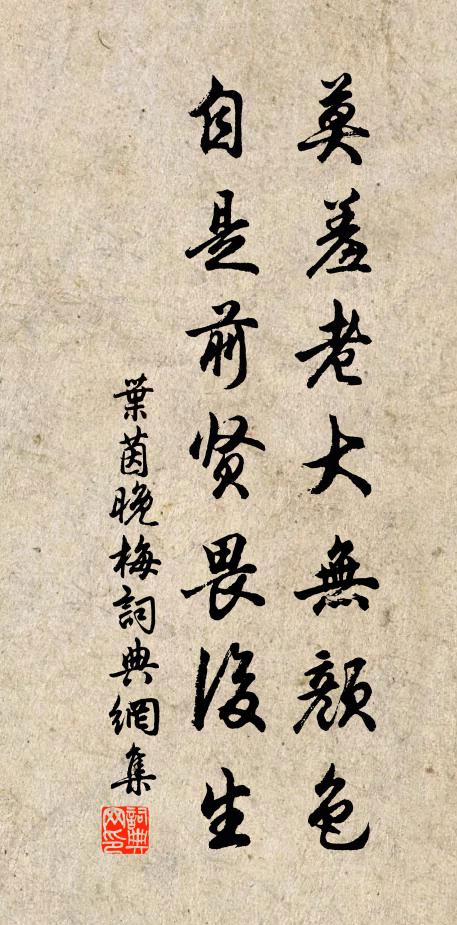 莫羞老大無顏色
自是前賢畏後生
葉茵晚梅詞典網集
詞典网印